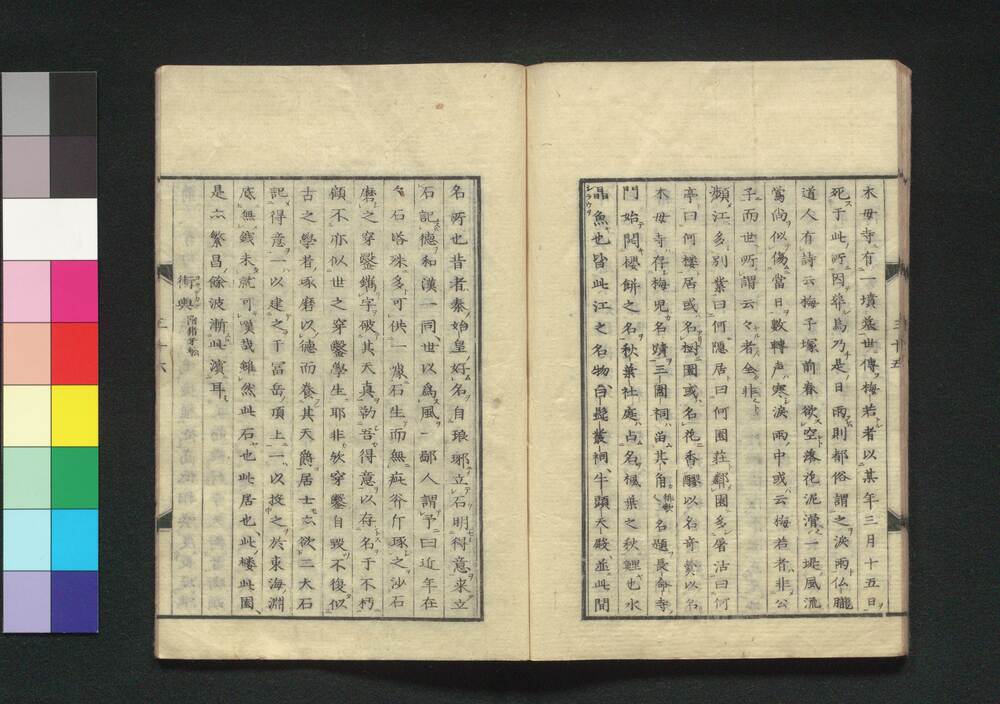 木母寺有一墳墓世傳梅若者以某年三月十五日
死于此所因築焉乃是日雨則都俗謂之淚雨仏朧
道人有詩云梅子塚前春欲空落花泥滑一堤風流
當尚似傷當日數轉声寒淚雨中或云梅若者非公
子而世所謂云々者全非
瀕江多別業曰何隱居曰何園莊鄰園多屠沽曰何
亭曰何樓居或名樹園或名花香醪以名奇羹以名
木母寺存梅児名蹟三囲祠畄其角名題長命寺
門始開櫻餅之名秋葉社庭占名楓葉之秋鯉也水
晶魚也皆此江之名物白髭叢祠牛頭天殿並此間
名所也昔者秦始皇好名自琅琊立石明得意来立
石記德和漢一同世以為風一鄙人謂予曰近年在
々石塔殊多可供一噱石生而無疵斧斤琢之沙石
磨之穿鑿鐫字破其天真勒吾得意以存名于不朽
顧不亦似世之穿鑿學生耶非欤穿鑿自毀不復似
古之學者琢磨以德而養其天爵居士亡欲二大石
記得意一以建之于富岳頂上一以投之於東海淵
底無錢未就可嘆哉雖然此石也此居也此楼此園
是亦繁昌餘波漸此濱耳
街輿
三十五
三十六